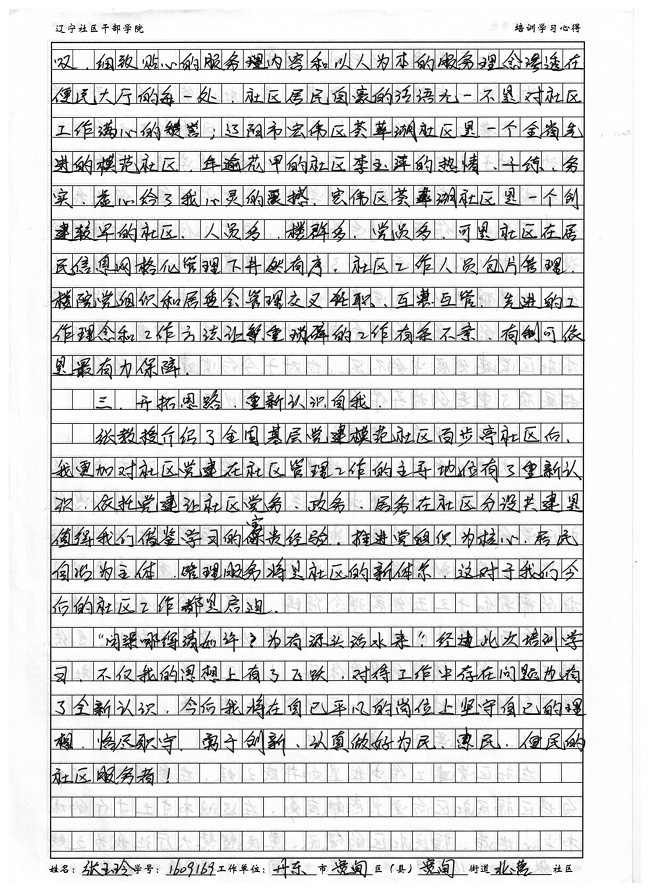 辽宁社区干部学院 培训学习心得
双,细致贴心的服务理内容和以人为本的服务理念渗透在
便民大厅的每一处,社区居民自豪的话语无一不是对社区
工作满心的赞誉;辽阳市宏伟区芙蓉湖社区是一个全省先
进的模范社区,年逾花甲的社区李玉萍的热情、干练、务
实、虚心给了我心灵的震撼,宏伟区芙蓉湖社区是一个创
建较早的社区,人员多,楼群多,党员多,可是社区在居
民信息网格化管理下井然有序,社区工作人员包片管理,
楼院党组织和居委会管理交叉任职,互惠互管,先进的工
作理念和工作方法让繁重琐碎的工作有条不紊,有制可依
是最有力保障.
三、开拓思路,重新认识自我.
张教授介绍了全国基层党建模范社区百步亭社区后,
我更加对社区党建在社区管理工作的主导地位有了重新认
识,依托党建让社区党务、政务、居务在社区分设共建是
值得我们借鉴学习的宝贵经验,推进党组织为核心,居民
自治为主体,管理服务将是社区的新体系,这对于我们今
后的社区工作都是启迪.
“问渠哪得清如许?为有源头活水来”.经过此次培训学
习,不仅我的思想上有了飞跃,对待工作中存在问题也有
了全新认识,今后我将在自己平凡的岗位上坚守自己的理
想,恪尽职守,勇于创新,认真做好为民、惠民、便民的
社区服务者!
姓名:张玉玲 学号:1609169 工作单位:丹东 市 宽甸 区(县) 宽甸 街道 社区